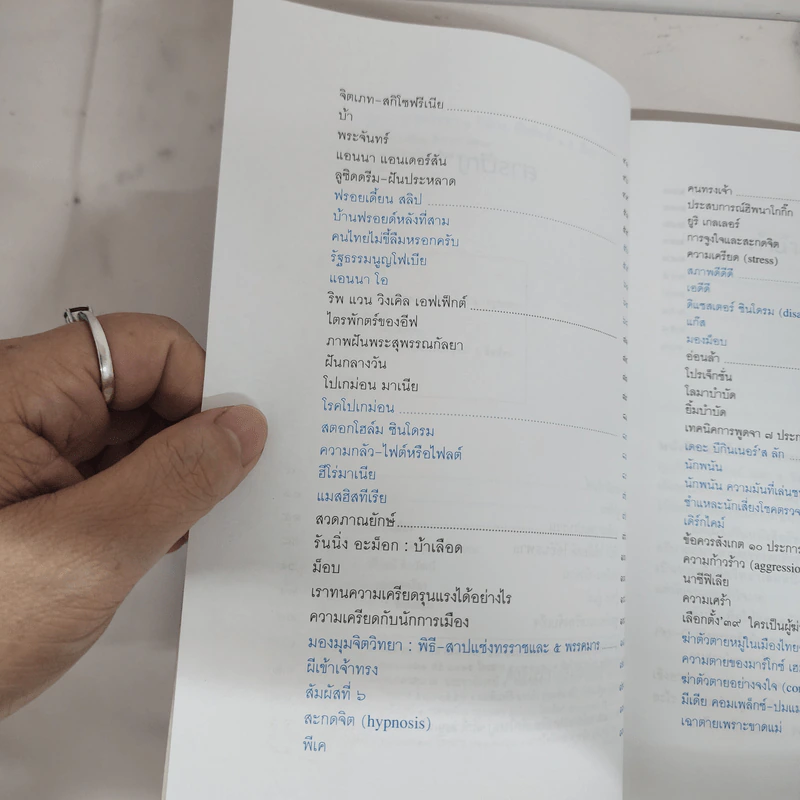 จิตเภท-สกิโซฟรีเนีย
บ้า
พระจันทร์
แอนนา แอนเดอร์สัน
ลูซิดดรีม-ฝันประหลาด
ฟรอยเดี้ยน สลิป
บ้านฟรอยด์หลังที่สาม
คนไทยไม่ขี้ลืมหรอกครับ
รัฐธรรมนูญโฟเบีย
แอนนา โอ
ริพ แวน วิงเคิล เอฟเฟ็กต์
ไตรพักตร์ของอีฟ
ภาพฝันพระสุพรรณกัลยา
ฝันกลางวัน
โปเกม่อน มาเนีย
โรคโปเกม่อน
สตอกโฮล์ม ซินโดรม
ความกลัว-ไฟต์หรือไฟลต์
ฮีโร่มาเนีย
แมสฮิสทีเรีย
สวดภาณยักษ์
รันนิ่ง อะม็อก : บ้าเลือด
ม็อบ
เราทนความเครียดรุนแรงได้อย่างไร
ความเครียดกับนักการเมือง
มองมุมจิตวิทยา : พิธี-สาปแช่งทรราชและ ๕ พรรคมาร
ผีเข้าเจ้าทรง
สัมผัสที่ ๖
สะกดจิต (hypnosis)
พีเค
คนทรงเจ้า
ประสบการณ์ฮิพนาโกกิ๊ก
ยูริ เกลเลอร์
การจูงใจและสะกดจิต
ความเครียด (stress)
สภาพดีดีดี
เอดีดี
ดิแซสเตอร์ ซินโดรม
แก๊ส
มองม็อบ
อ่อนล้า
โปรเจ็กชั่น
โลมาบำบัด
ยิ้มบำบัด
เทคนิคการพูดจา ๗
เดอะ บีกินเนอร์'ส ลัก
นักพนัน
นักพนัน ความมันที่เล่น
ชำแหละนักเสี่ยงโชค
เติร์กไคม์
ข้อควรสังเกต ๑๐ ประการ
ความก้าวร้าว
นาซีฟิเลีย
ความเศร้า
เลือกตั้ง'๓๙ ใครเป็น
ฆ่าตัวตายหมู่ในเมืองไทย
ความตายของมาร์โกซ์
ฆ่าตัวตายอย่างจงใจ
มีเดีย คอมเพล็กซ์-ปม
เฉาตายเพราะขาดแม่